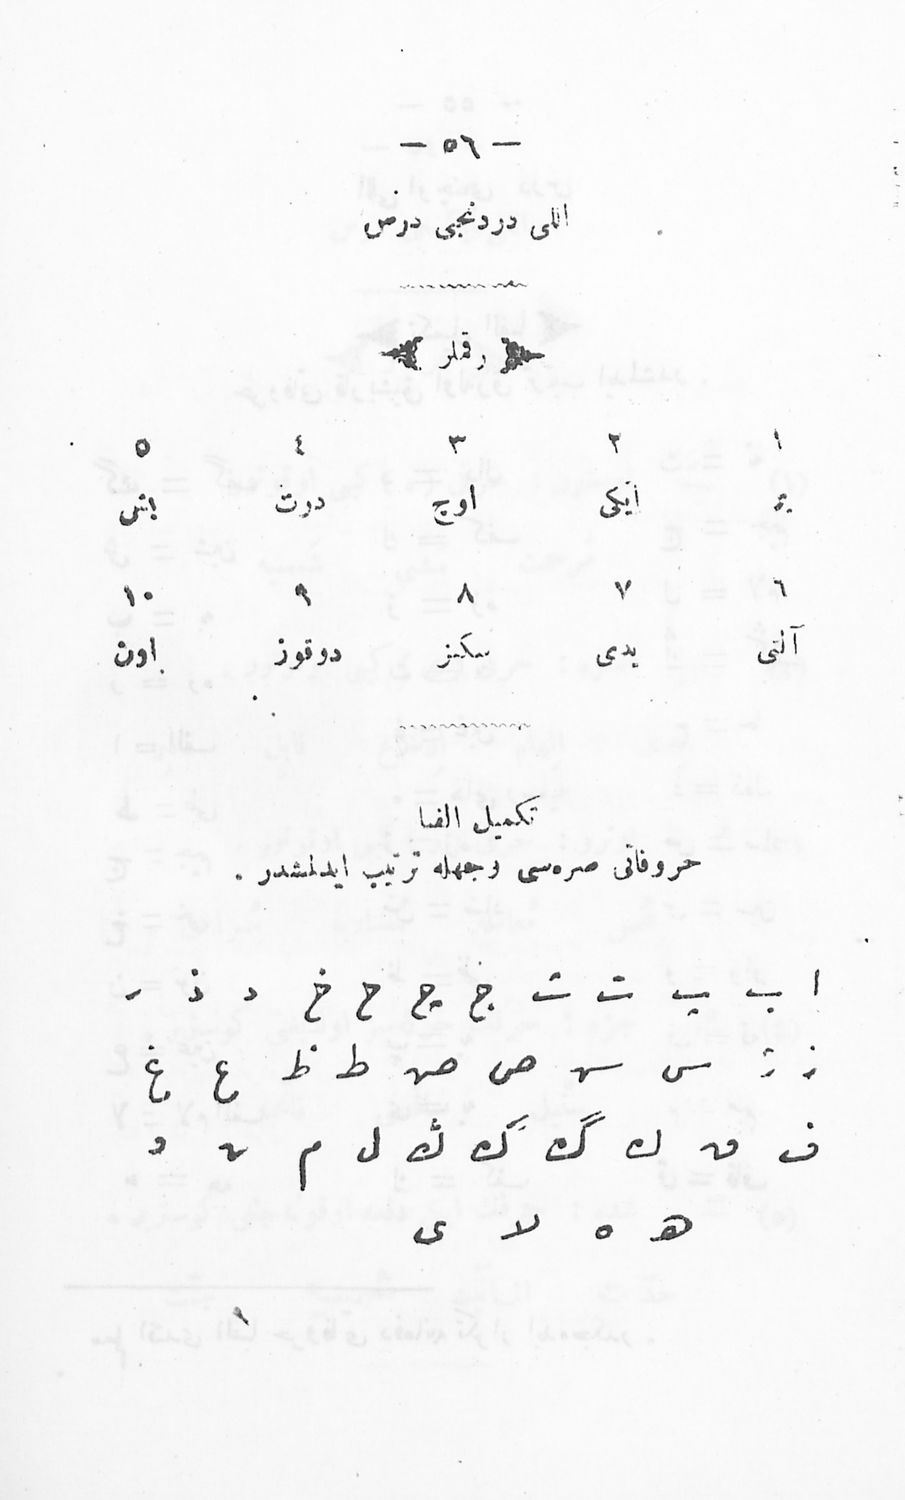 — ٥٦ —
اللی دردنجی درس
رقملر
١ ٢ ٣ ٤ ٥
بر ایکی اوچ درت بش
٦ ٧ ٨ ٩ ١٠
آلتی یدی سکز دوقوز اون
تکمیل الفبا
حروفاتی صره‌سی وجهله ترتیب ایدلمشدر .
ا ب پ ت ث ج چ ح خ د ذ ر
ز ژ س ش ص ض ط ظ ع غ
ف ق ك گ ک ڭ ل م ن و
ه ە لا ی